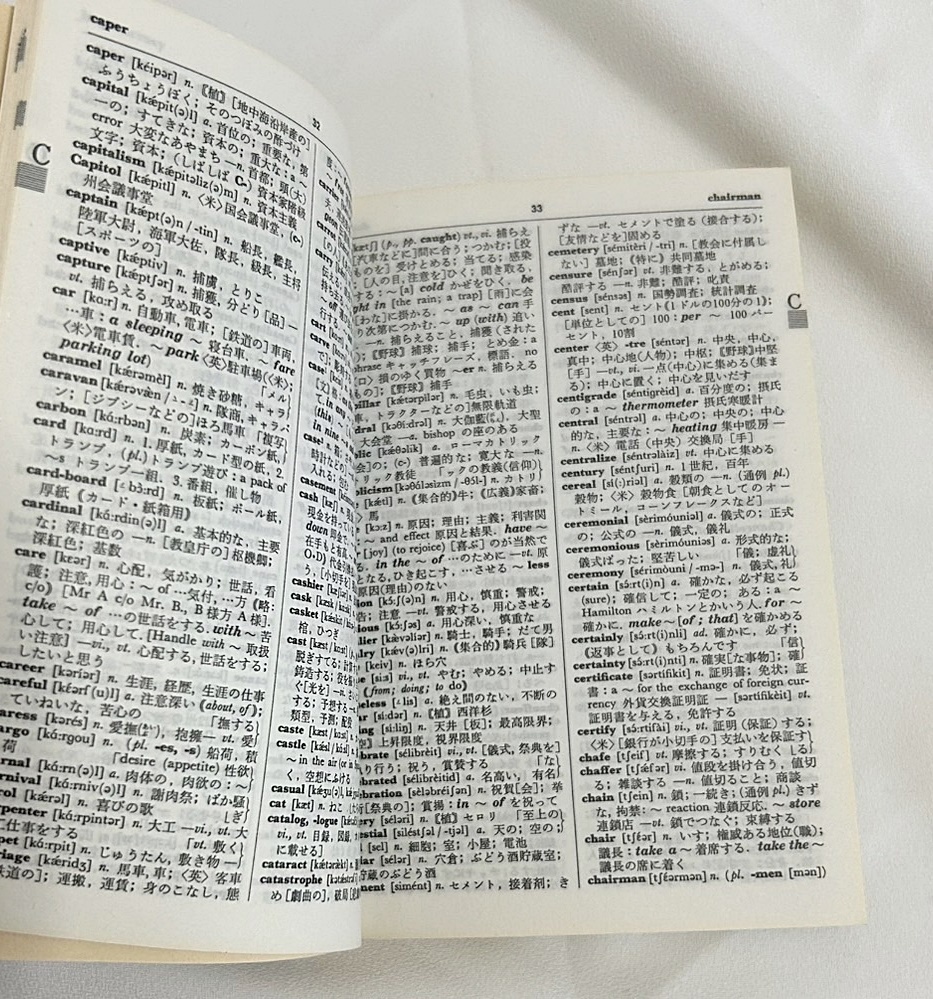 caper
32
caper [kéipər] n. 〘植〙[地中海沿岸産の]
ふうちょうぼく; そのつぼみの酢づけ
capital [kǽpit(ə)l] a. 首位の; 重要な, 第
一の; すてきな; 資本の; 重大な: a ~
error 大変なあやまち —n. 首都; 頭(大)
文字; 資本; (しばしば C-) 資本家階級
capitalism [kǽpitəliz(ə)m] n. 資本主義
Capitol [kǽpitl] n. 〈米〉国会議事堂, (c-)
州会議事堂
captain [kǽpt(ə)n / -tin] n. 船長, 艦長,
陸軍大尉, 海軍大佐, 隊長, 級長, 主将
[スポーツの]
captive [kǽptiv] n. 捕虜, とりこ
capture [kǽptʃər] n. 捕獲, 分どり[品] —
vt. 捕らえる, 攻め取る
car [kɑ:r] n. 自動車, 電車; [鉄道の] 車両,
…車: a sleeping ~ 寝台車. ~ fare
〈米〉電車賃. ~ park 〈英〉駐車場(〈米〉;
parking lot)
caramel [kǽrəməl] n. 焼き砂糖, キャラ
caravan [kǽrəvæn / ⸗-⸗] n. 隊商, キャラバ
ン; [ジプシーなどの]ほろ馬車
carbon [kɑ́:rbən] n. 炭素; カーボン紙,
card [kɑ:rd] n. 1. 厚紙, カード型の紙, 2.
トランプ, (pl.) トランプ遊び: a pack of
~s トランプ一組. 3. 番組, 催し物
card-board [⸗bɔ̀:rd] n. 板紙; ボール紙,
厚紙 (カード・紙箱用)
cardinal [kɑ́:rdin(ə)l] a. 基本的な, 主要
な; 深紅色の —n. [教皇庁の] 枢機卿;
深紅色; 基数
care [kɛər] n. 心配, 気がかり; 世話, 看
護; 注意, 用心: ~ of …気付, …方 (略:
c/o) [Mr A c/o Mr. B., B 様方 A 様].
take ~ of …の世話をする. with ~ 苦
心して; 用心して. [Handle with ~ 取扱
い注意] —vi., vt. 心配する, 世話をする;
したいと思う
career [kəríər] n. 生涯, 経歴, 生涯の仕事
careful [kɛ́ərf(u)l] a. 注意深い (about, of);
ていねいな, 苦心の 「撫する
caress [kərés] n. 愛撫, 抱擁— vt. 愛
cargo [kɑ́:rgou] n. (pl. -es, -s) 船荷, 積
荷 「desire (appetite) 性欲
carnal [kɑ́:rn(ə)l] a. 肉体の, 肉欲の: ~
carnival [kɑ́:rniv(ə)l] n. 謝肉祭; ばか騒
carol [kǽrəl] n. 喜びの歌 「ぎ
carpenter [kɑ́:rpintər] n. 大工 —vi., vt. 大
工仕事をする 「vt. 敷く
carpet [kɑ́:rpit] n. じゅうたん, 敷き物 —
carriage [kǽridʒ] n. 馬車, 車; 〈英〉 客車
[鉄道の]; 運搬, 運賃; 身のこなし, 態
C
casement
cash
cashier
cask
casket
棺, ひつぎ
cast
caste
castle
casual
cat [kæt] n. ねこ
catalog, -logue
vi., vt. 目録,
に載せる]
cataract [kǽtərækt]
catastrophe
め [劇曲の], 破局
33
chairman
caught) vt., vi. 捕らえ
[汽車などに]間に合う; つかむ; [投
ものを] 受けとめる; 当てる; 感染
; [人の目, 注意を]ひく; 聞き取る,
する: ~ [a] cold かぜをひく. be
ght in [the rain; a trap] [雨に]会
[わな]に掛かる. ~ as ~ can 手
り次第につかむ. ~ up (with) 追い
—n. 捕らえること, 捕獲 (された
); 〘野球〙捕球; 捕手; とめ金: a
phrase キャッチフレーズ, 標語. no
損のゆく買物 ~er n. 捕らえる
[もの]; 〘野球〙捕手
pillar [kǽtərpilər] n. 毛虫, いも虫;
車, トラクターなどの]無限軌道
dral [kəθí:drəl] n. 大伽藍, 大聖
大会堂 —a. bishop の座のある
lic [kǽθəlik] a. ローマカトリック
会]の; (c-) 普遍的な; 寛大な —n.
リック教徒 「ックの教義(信仰)
olicism [kəθɔ́ləsizm / -θɔ́l-] n. カトリ
[kǽtl] n. (集合的)牛; (広義)家畜;
馬
[kɔ:z] n. 原因; 理由; 主義; 利害関
~ and effect 原因と結果. have ~
[joy] (to rejoice) [喜ぶ]のが当然で
る. in the ~ of …のために —vt. 原
となる, ひき起こす, …させる ~less
原因(理由)のない
ion [kɔ́:ʃ(ə)n] n. 用心, 慎重; 警戒;
告; 注意 —vt. 警戒する, 用心させる
ious [kɔ́:ʃəs] a. 用心深い, 慎重な
lier [kæ̀vəlíər] n. 騎士, 騎手; だて男
lry [kǽv(ə)lri] n. (集合的) 騎兵[隊]
[keiv] n. ほら穴
[si:s] vi., vt. やむ; やめる; 中止す
(from; doing; to do)
eless [⸗lis] a. 絶え間のない, 不断の
ar [sí:dər] n. 〘植〙西洋杉
ing [sí:liŋ] n. 天井 [板]; 最高限界;
上昇限度, 視界限度
brate [sélibrèit] vi., vt. [儀式, 祭典を]
り行う; 祝う, 賞賛する 「な
brated [sélibrèitid] a. 名高い, 有名
bration [sèləbréiʃən] n. 祝賀[会]; 挙
[祭典の]; 賞揚: in ~ of を祝って
ery [séləri] n. 〘植〙セロリ 「至上の
estial [siléstʃəl / -tjəl] a. 天の; 空の;
[sel] n. 細胞; 室; 小屋; 電池
lar [sélər] n. 穴倉; ぶどう酒貯蔵室;
貯蔵のぶどう酒
ment [simént] n. セメント, 接着剤; き
ずな —vt. セメントで塗る (接合する);
[友情などを]固める
cemetery [sémitèri / -tri] n. [教会に付属し
ない] 墓地; (特に) 共同墓地
censure [sénʃər] vt. 非難する, とがめる;
酷評する —n. 非難; 酷評; 叱責
census [sénsəs] n. 国勢調査; 統計調査
cent [sent] n. セント(1ドルの100分の1);
[単位としての] 100: per ~ 100 パー
セント, 10割
center 〈英〉 -tre [séntər] n. 中央, 中心,
真中; 中心地(人物); 中枢; 〘野球〙中堅
[手] —vt., vi. 一点(中心)に集める(集ま
る); 中心に置く; 中心を見いだす
centigrade [séntigrèid] a. 百分度の; 摂氏
の: a ~ thermometer 摂氏寒暖計
central [séntrəl] a. 中心の; 中央の; 中心
的な, 主要な: ~ heating 集中暖房 —
n. 〈米〉電話 (中央) 交換局 [手]
centralize [séntrəlàiz] vt. 中心に集める
century [séntʃuri] n. 1世紀, 百年
cereal [sí(:)riəl] a. 穀類の —n. (通例 pl.)
穀物; 〈米〉穀物食 [朝食としてのオー
トミール, コーンフレークなど]
ceremonial [sèrimóuniəl] a. 儀式の; 正式
の; 公式の —n. 儀式, 儀礼
ceremonious [sèrimóuniəs] a. 形式的な;
儀式ばった; 堅苦しい 「儀; 虚礼
ceremony [sérimòuni / -mə-] n. 儀式, 礼
certain [sə́:rt(i)n] a. 確かな, 必ず起こる
(sure); 確信して; 一定の; ある: a ~
Hamilton ハミルトンとかいう人. for ~
確かに. make ~ [of; that] を確かめる
certainly [sə́:rt(i)nli] ad. 確かに, 必ず;
(返事として) もちろんです 「信
certainty [sə́:rt(i)nti] n. 確実[な事物]; 確
certificate [sərtífikit] n. 証明書; 免状, 証
書: a ~ for the exchange of foreign cur-
rency 外貨交換証明証 — [sərtífikèit] vt.
証明書を与える, 免許する
certify [sə́:rtifài] vi., vt. 証明 (保証) する;
〈米〉[銀行が小切手の] 支払を保証す
chafe [tʃeif] vt. 摩擦する; すりむく 「る
chaffer [tʃǽfər] vi., vt. 値段を掛け合う, 値切
る; 雑談する —n. 値切ること; 商談
chain [tʃein] n. 鎖; 一続き; (通例 pl.) きず
な, 拘禁: ~ reaction 連鎖反応. ~ store
連鎖店 —vt. 鎖でつなぐ; 束縛する
chair [tʃɛər] n. いす; 権威ある地位(職);
議長: take a ~ 着席する. take the ~
議長の席に着く
chairman [tʃɛ́ərmən] n. (pl. -men [mən])
C